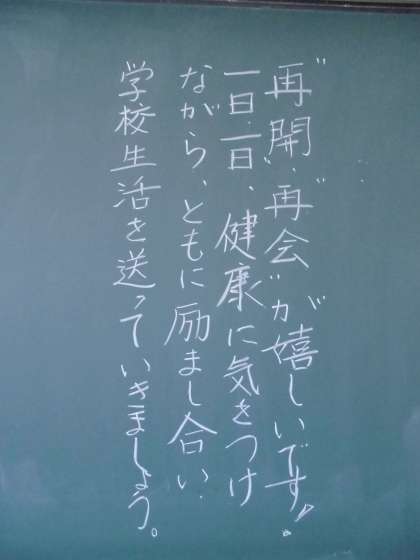 "再開"・"再会"が嬉しいです!
一日一日、健康に気をつけ
ながら、ともに励まし合い
学校生活を送っていきましょう。